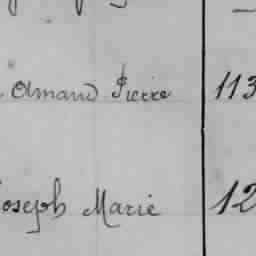 Amand Pierre 113
Joseph Marie 12